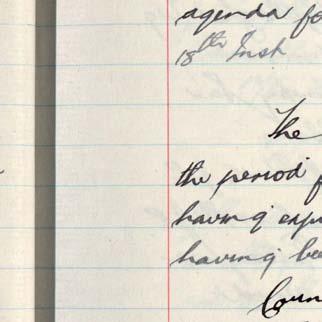 agenda fo
18th Inst
The
the period f
having expi
having bee
Coun